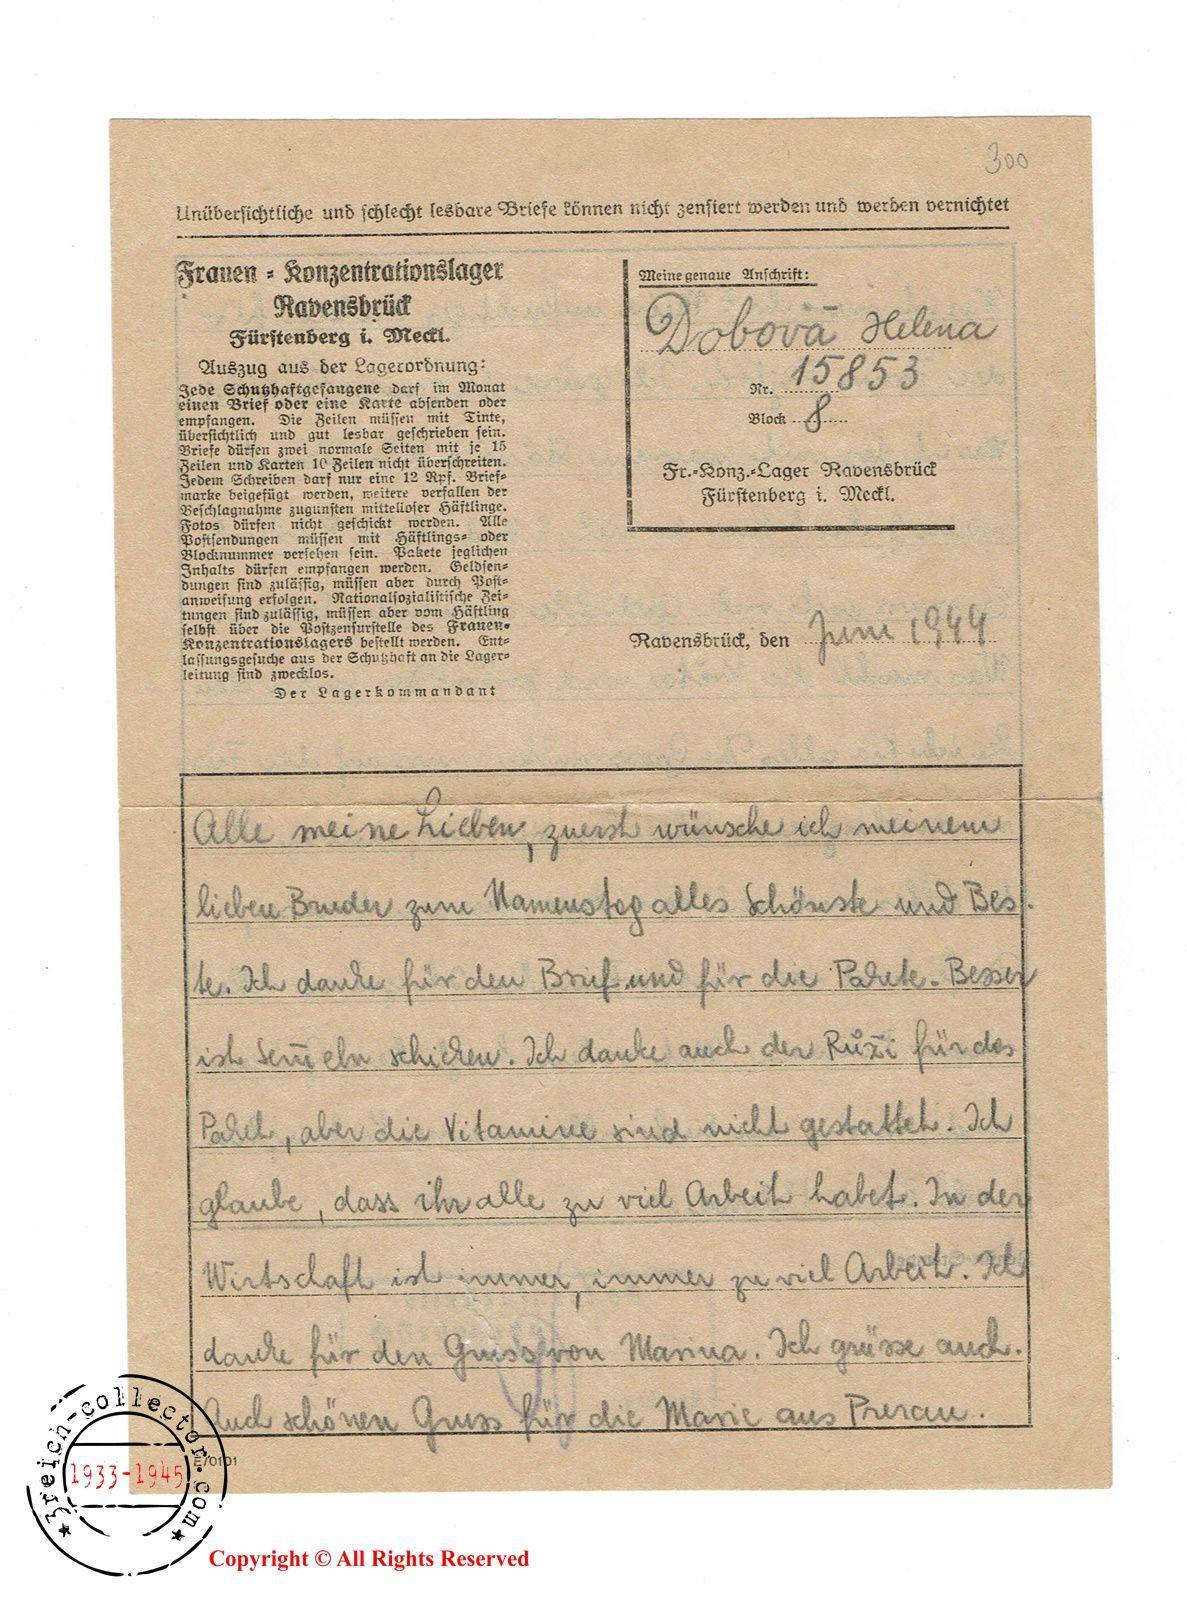 300
Unübersichtliche und schlecht lesbare Briefe können nicht zensiert werden und werden vernichtet
Frauen - Konzentrationslager
Ravensbrück
Fürstenberg i. Meckl.
Auszug aus der Lagerordnung:
Jede Schutzhaftgefangene darf im Monat
einen Brief oder eine Karte absenden oder
empfangen. Die Zeilen müssen mit Tinte,
übersichtlich und gut lesbar geschrieben sein.
Briefe dürfen zwei normale Seiten mit je 15
Zeilen und Karten 10 Zeilen nicht überschreiten.
Jedem Schreiben darf nur eine 12 Rpf. Brief-
marke beigefügt werden, weitere verfallen der
Beschlagnahme zugunsten mittelloser Häftlinge.
Fotos dürfen nicht geschickt werden. Alle
Postsendungen müssen mit Häftlings- oder
Blocknummer versehen sein. Pakete jeglichen
Inhalts dürfen empfangen werden. Geldsen-
dungen sind zulässig, müssen aber durch Post-
anweisung erfolgen. Nationalsozialistische Zei-
tungen sind zulässig, müssen aber vom Häftling
selbst über die Postzensurstelle des Frauen-
Konzentrationslagers bestellt werden. Ent-
lassungsgesuche aus der Schutzhaft an die Lager-
leitung sind zwecklos.
Der Lagerkommandant
Meine genaue Anschrift:
Dobová Helena
Nr. 15853
Block 8
Fr.-Konz.-Lager Ravensbrück
Fürstenberg i. Meckl.
Ravensbrück, den Juni 1944
Alle meine Lieben, zuerst wünsche ich meinem
lieben Bruder zum Namenstag alles Schönste und Bes-
te. Ich danke für den Brief und für die Pakete. Besser
ist Sem̅eln schicken. Ich danke auch der Růži für das
Paket, aber die Vitamine sind nicht gestattet. Ich
glaube, dass ihr alle zu viel Arbeit habet. In der
Wirtschaft ist immer, immer zu viel Arbeit. Ich
danke für den Gruss von Marina. Ich grüsse auch.
Auch schönen Gruss für die Marie aus Prerau.
E/0101
3reich-collector.com
1933-1945
Copyright © All Rights Reserved